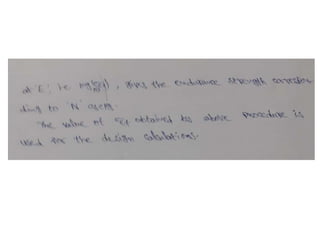 at 'E', i.e. log(Sf), gives the endurance strength correspon
ding to 'N' cycles.
The value of Sf obtained by above procedure is
used for the design calculations.